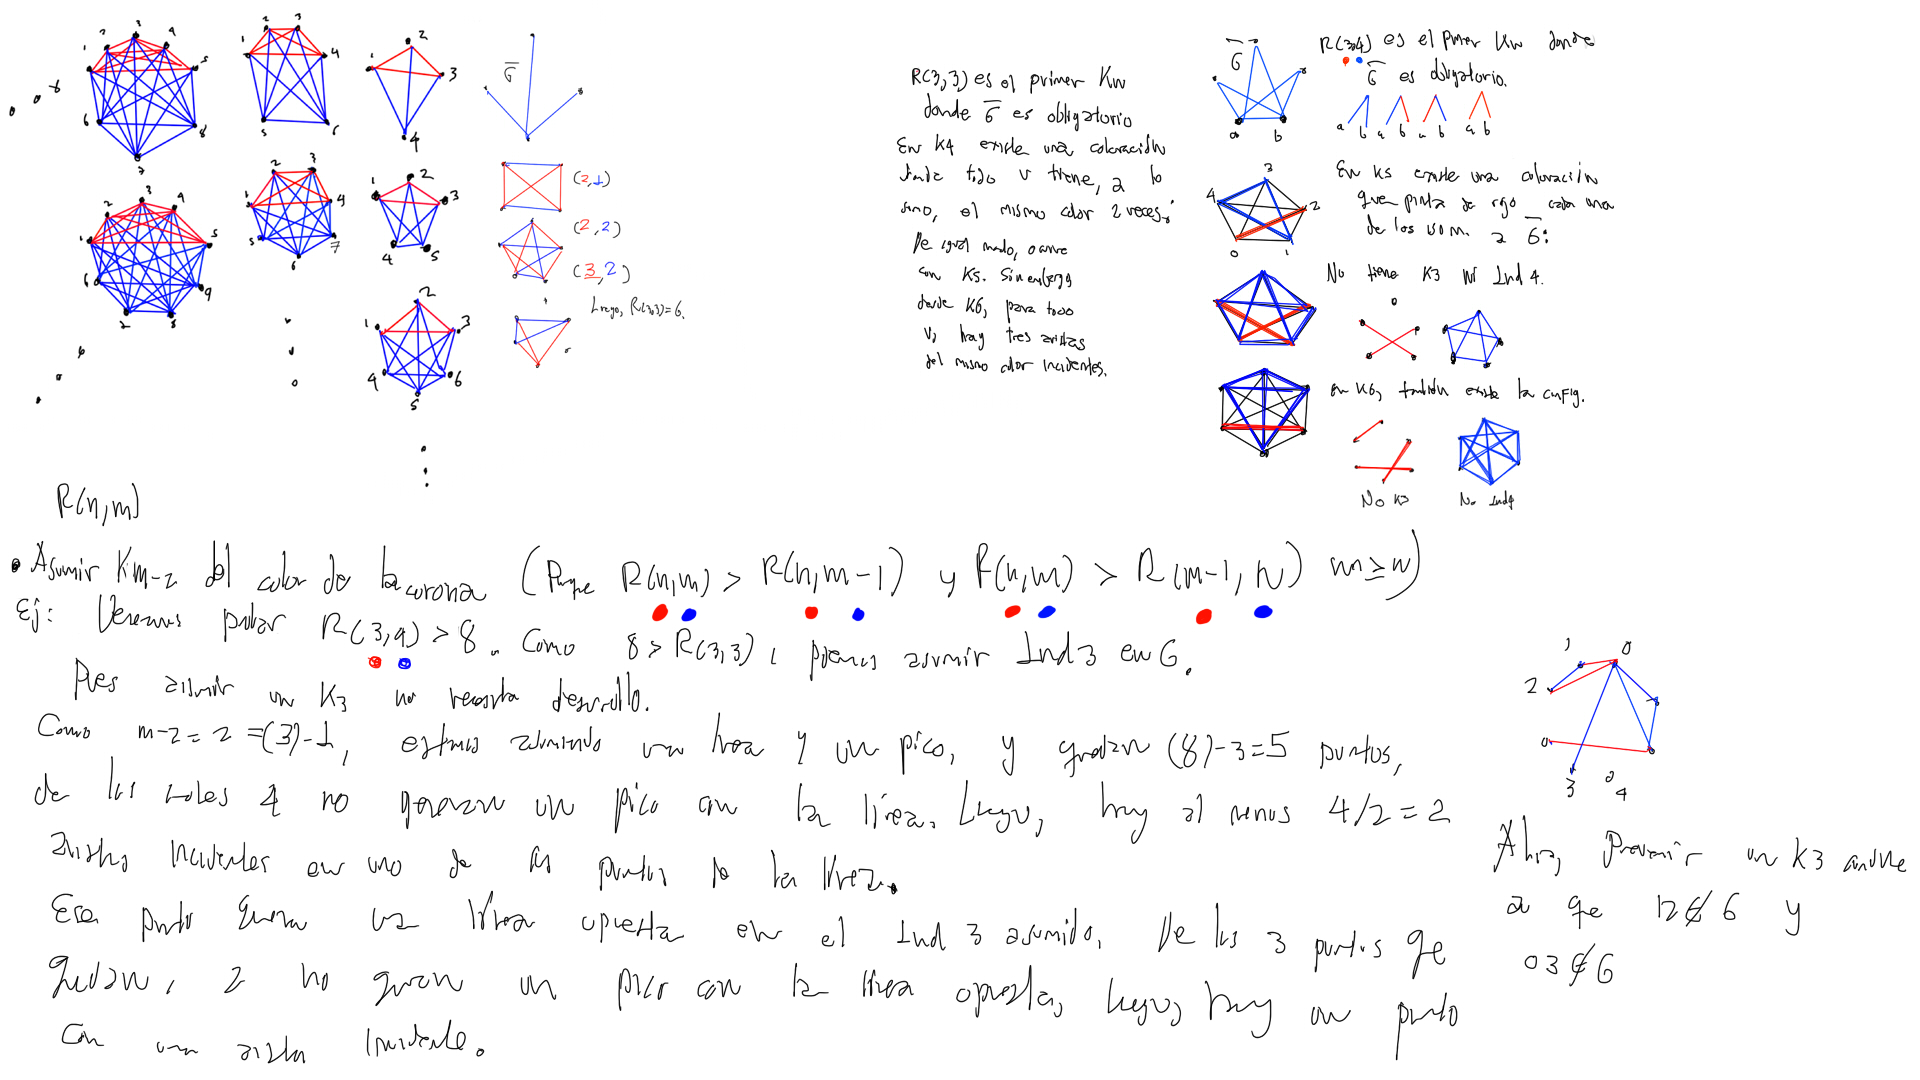 R(3,3) es el primer Kn
donde G es obligatorio
En K4 existe una coloración
donde todo v tiene, a lo
sumo, el mismo color 2 veces;
De igual modo, ocurre
con K5. Sin embargo
desde K6, para todo
v, hay tres aristas
del mismo color incidentes.
(2,1)
(2,2)
(3,2)
Luego, R(3,3)=6.
R(3,4) es el primer Kn donde
G es obligatorio.
En K5 existe una coloración
que pinta de rojo cada una
de los isom. a G:
No tiene K3 ni Ind 4.
en K6, también existe la config.
No K3
No Ind4
R(n,m)
Asumir Km-2 del color de la corona (Porque R(n,m) > R(n,m-1) y R(n,m) > R(m-1,n) m≥n)
Ej: Veremos probar R(3,4) > 8. Como 8 > R(3,3), podemos asumir Ind 3 en G.
Pues asumir un K3 no necesita desarrollo.
Como m-2 = 2 = (3)-1, estamos asumiendo una línea y un pico, y quedan (8)-3=5 puntos,
de los cuales 4 no generan un pico con la línea. Luego, hay al menos 4/2 = 2
aristas incidentes en uno de los puntos de la línea.
Ese punto genera una línea opuesta en el Ind 3 asumido. De los 3 puntos que
quedan, 2 no generan un pico con la línea opuesta, luego, hay un punto
con una arista incidente.
Ahora, prevenir un K3 conduce
a que 12∉G y
03∉G